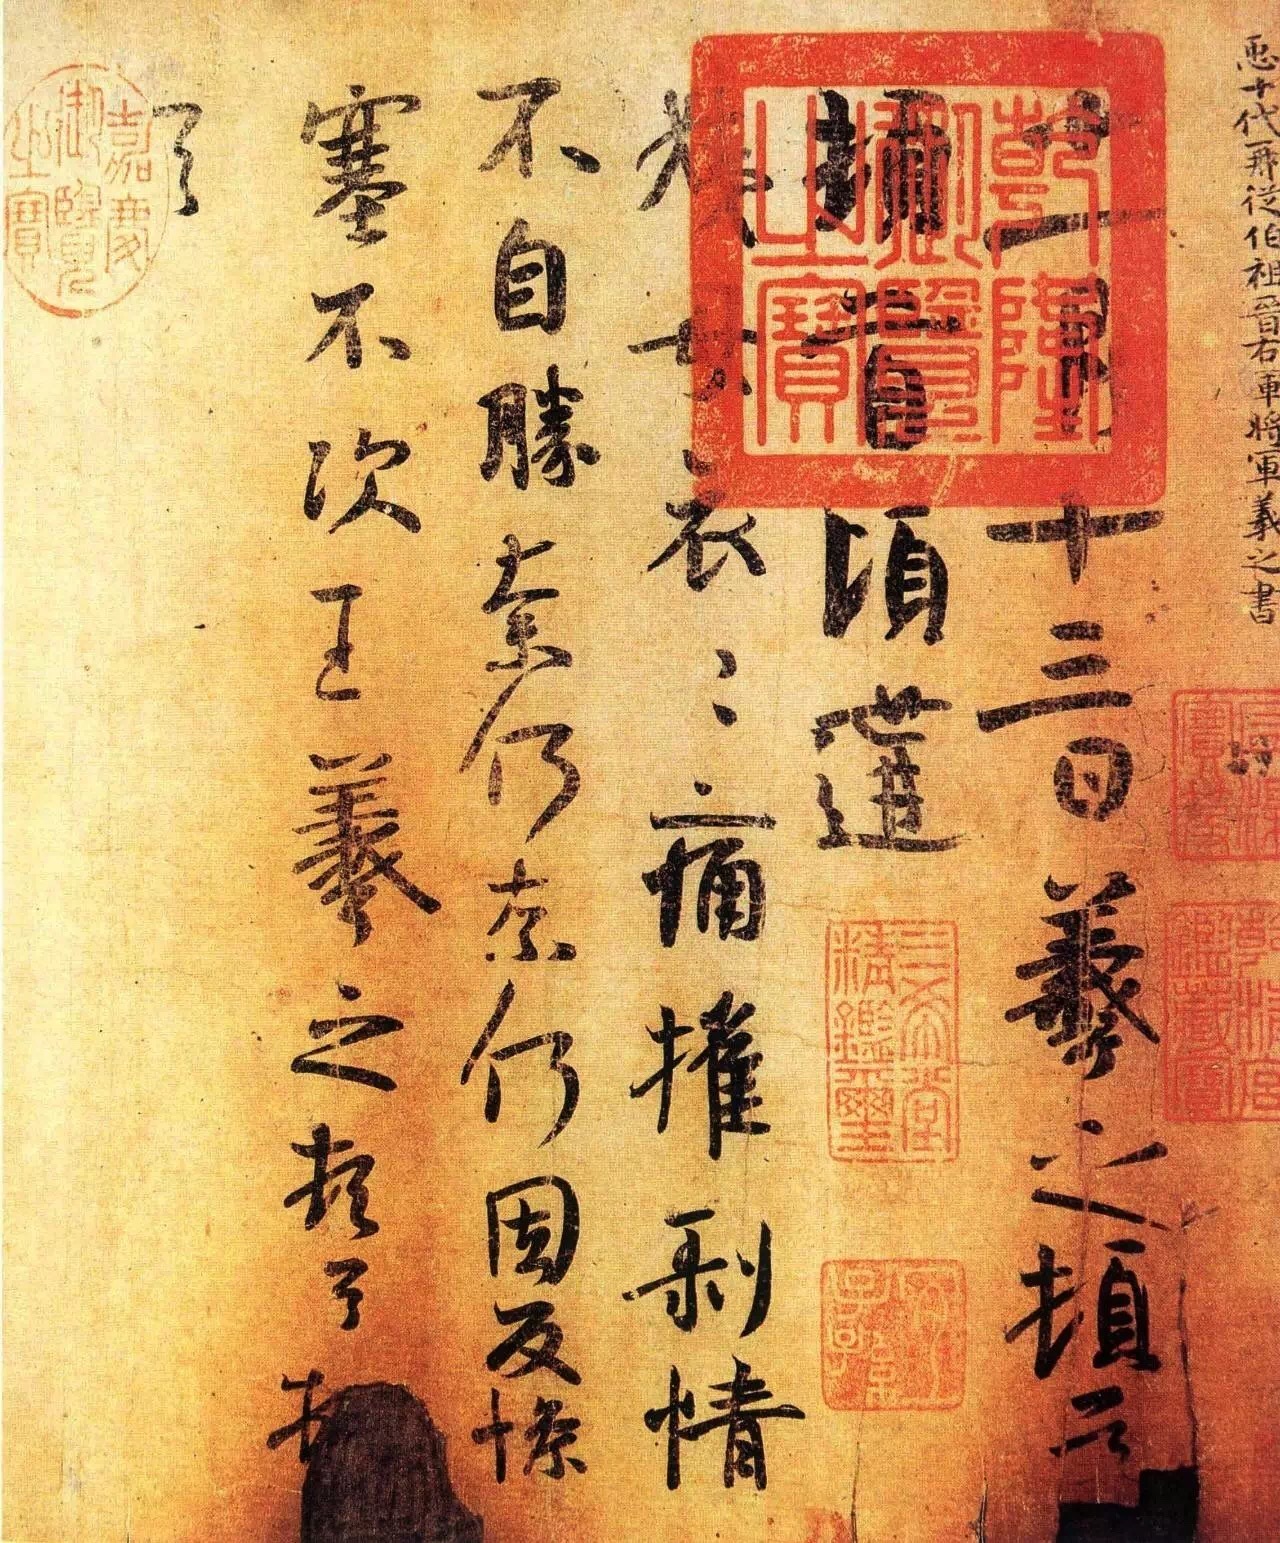 臣十代再從伯祖晉右軍將軍羲之書
石渠寶笈
乾清宮鑑藏寶
十一月十三日羲之頓首
乾隆御覽之寶
頓首頃遘
三希堂精鑑璽
姨母哀〻痛摧剝情
不自勝奈何奈何因反慘
塞不次王羲之頓首頓
首
嘉慶御覽之寶